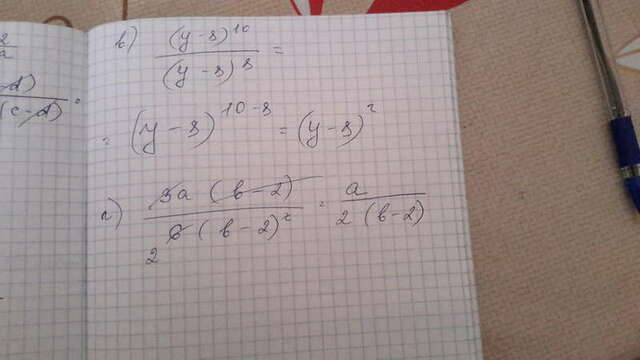 2
a
в) (y-8)^10 / (y-8)^8 =
(c-d)
= (y-8)^10-8 = (y-8)^2
г) 3a (b-2) / 2 6 (b-2)^2 = a / 2 (b-2)